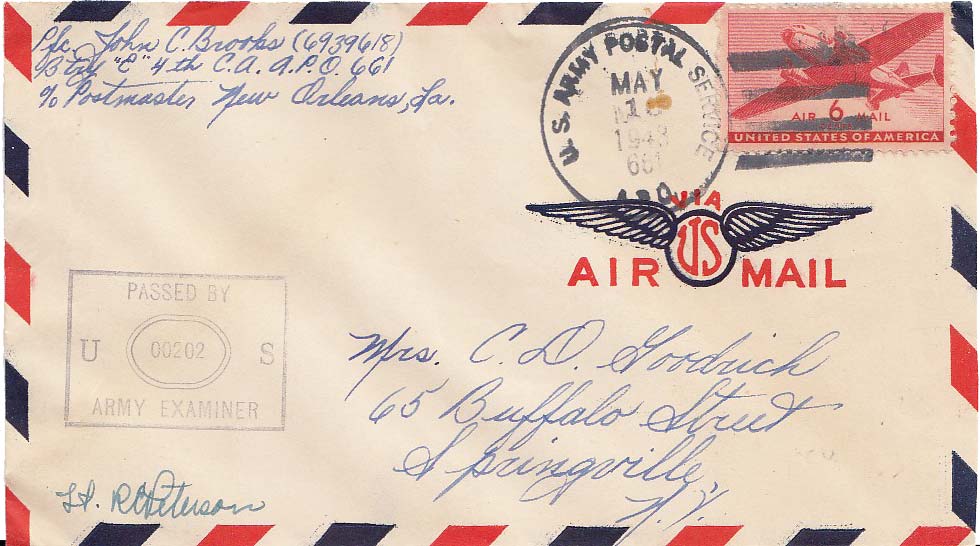 Pfc. John C. Brooks (6939618)
Btry "C" 4th C.A. A.P.O. 661
c/o Postmaster New Orleans, La.
U.S. ARMY POSTAL SERVICE
MAY
1943
661
A.P.O.
AIR 6 MAIL
CENTS
UNITED STATES OF AMERICA
VIA
US
AIR MAIL
PASSED BY
U 00202 S
ARMY EXAMINER
Mrs. C. D. Goodrich
65 Buffalo Street
Springville,
N.Y.
Lt. R C Peterson